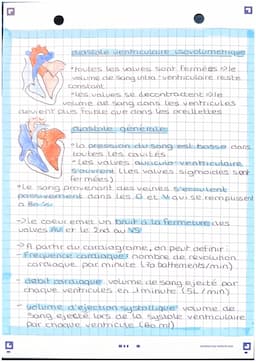 diastole ventriculaire isovolumétrique
*toutes les valves sont fermées => le
volume de sang intra-ventriculaire reste
constant
*les valves se décontractent => le
volume de sang dans les ventricules
devient plus faible que dans les oreillettes
diastole générale
*la pression du sang est basse dans
toutes les cavités
*Les valves auriculo-ventriculaire
s'ouvrent (les valves sigmoïdes sont
fermées)
*Le sang provenant des veines s'écoulent
passivement dans les O et V qui se remplissent
à
=> le coeur émet un bruit à la fermeture des
valves AV et le 2nd au VS
=> A partir du cardiogramme, on peut définir
- Fréquence cardiaque: nombre de révolution
cardiaque par minute (70 battements/min)
- débit cardiaque: volume de sang éjecté par
chaque ventricules en 1 minute (5L/min)
- volume d'éjection systolique: volume de
sang éjecté lors de la systole ventriculaire
par chaque ventricule (80 ml)